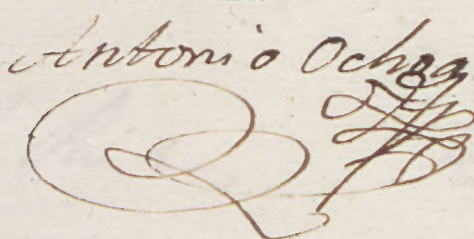 Antonio Ochoa